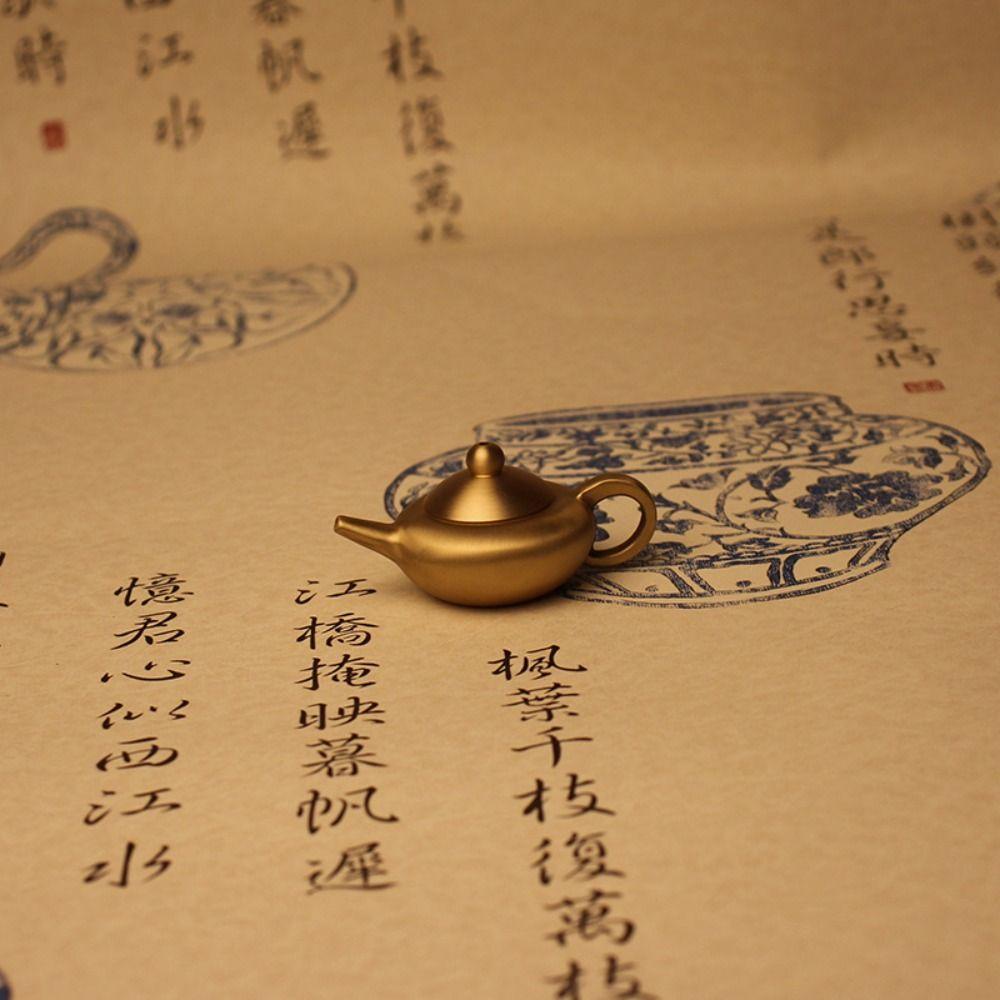 枝復萬
帆遲
江水
時
郎行思 時
楓葉千枝復萬枝
江橋掩映暮帆遲
憶君心似西江水